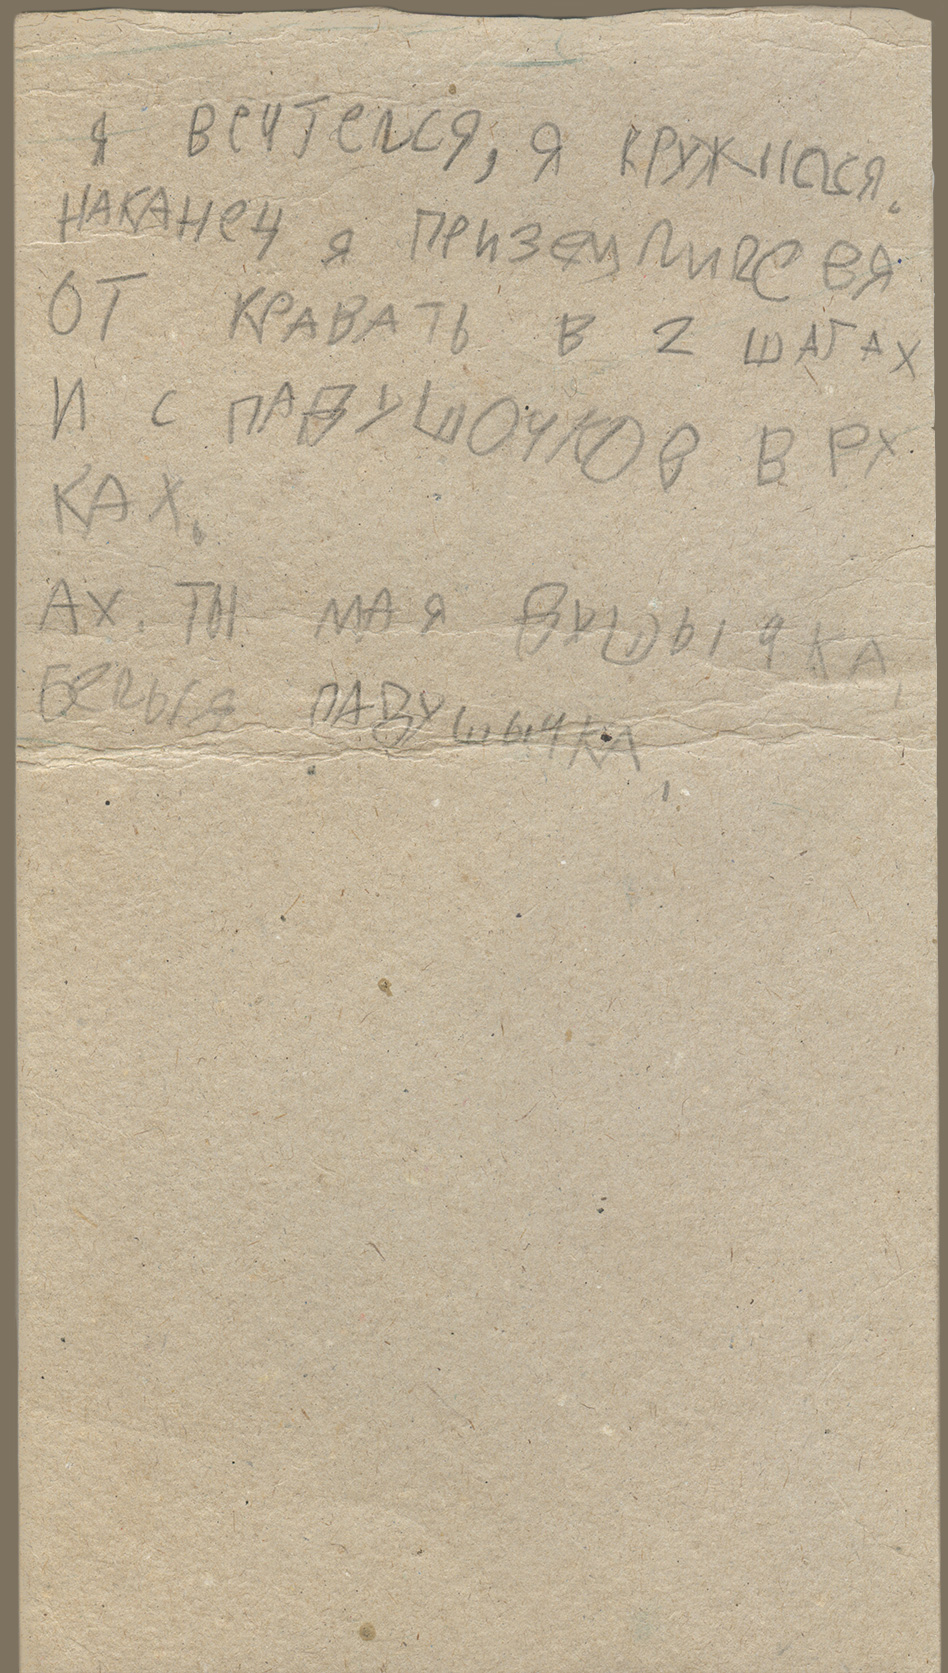 Я ВЕЧТЕЛСЯ, Я КРУЖИЛСЯ.
НАКАНЕЦ Я ПРИЗЕМЛИЛСЯ
ОТ КРАВАТЬ В 2 ШАГАХ
И С ПАДУШОЧКОВ В РУ
КАХ.
АХ. ТЫ МАЯ ДУШЫЧКА,
БЕЛЫЯ ПАДУШЫЧКА!